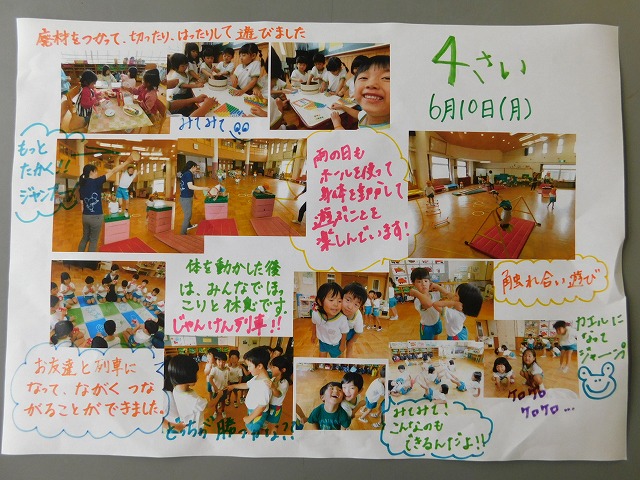 廃材をつかって、切ったり、はったりして遊びました
4さい
6月10日(月)
みてみて
もっと
たかく!!
ジャンプ
雨の日も
ホールを使って
身体を動かして
遊ぶことを
楽しんでいます!
体を動かした後
は、みんなでほっ
こりと休息です
じゃんけん列車!!
触れ合い遊び
カエルに
なって
ジャーンプ
お友達と列車に
なって、ながくつな
がることができました。
どっちが勝つかな?!
みてみて!
こんなのも
できるんだよ!!
ケロケロ
ケロケロ...